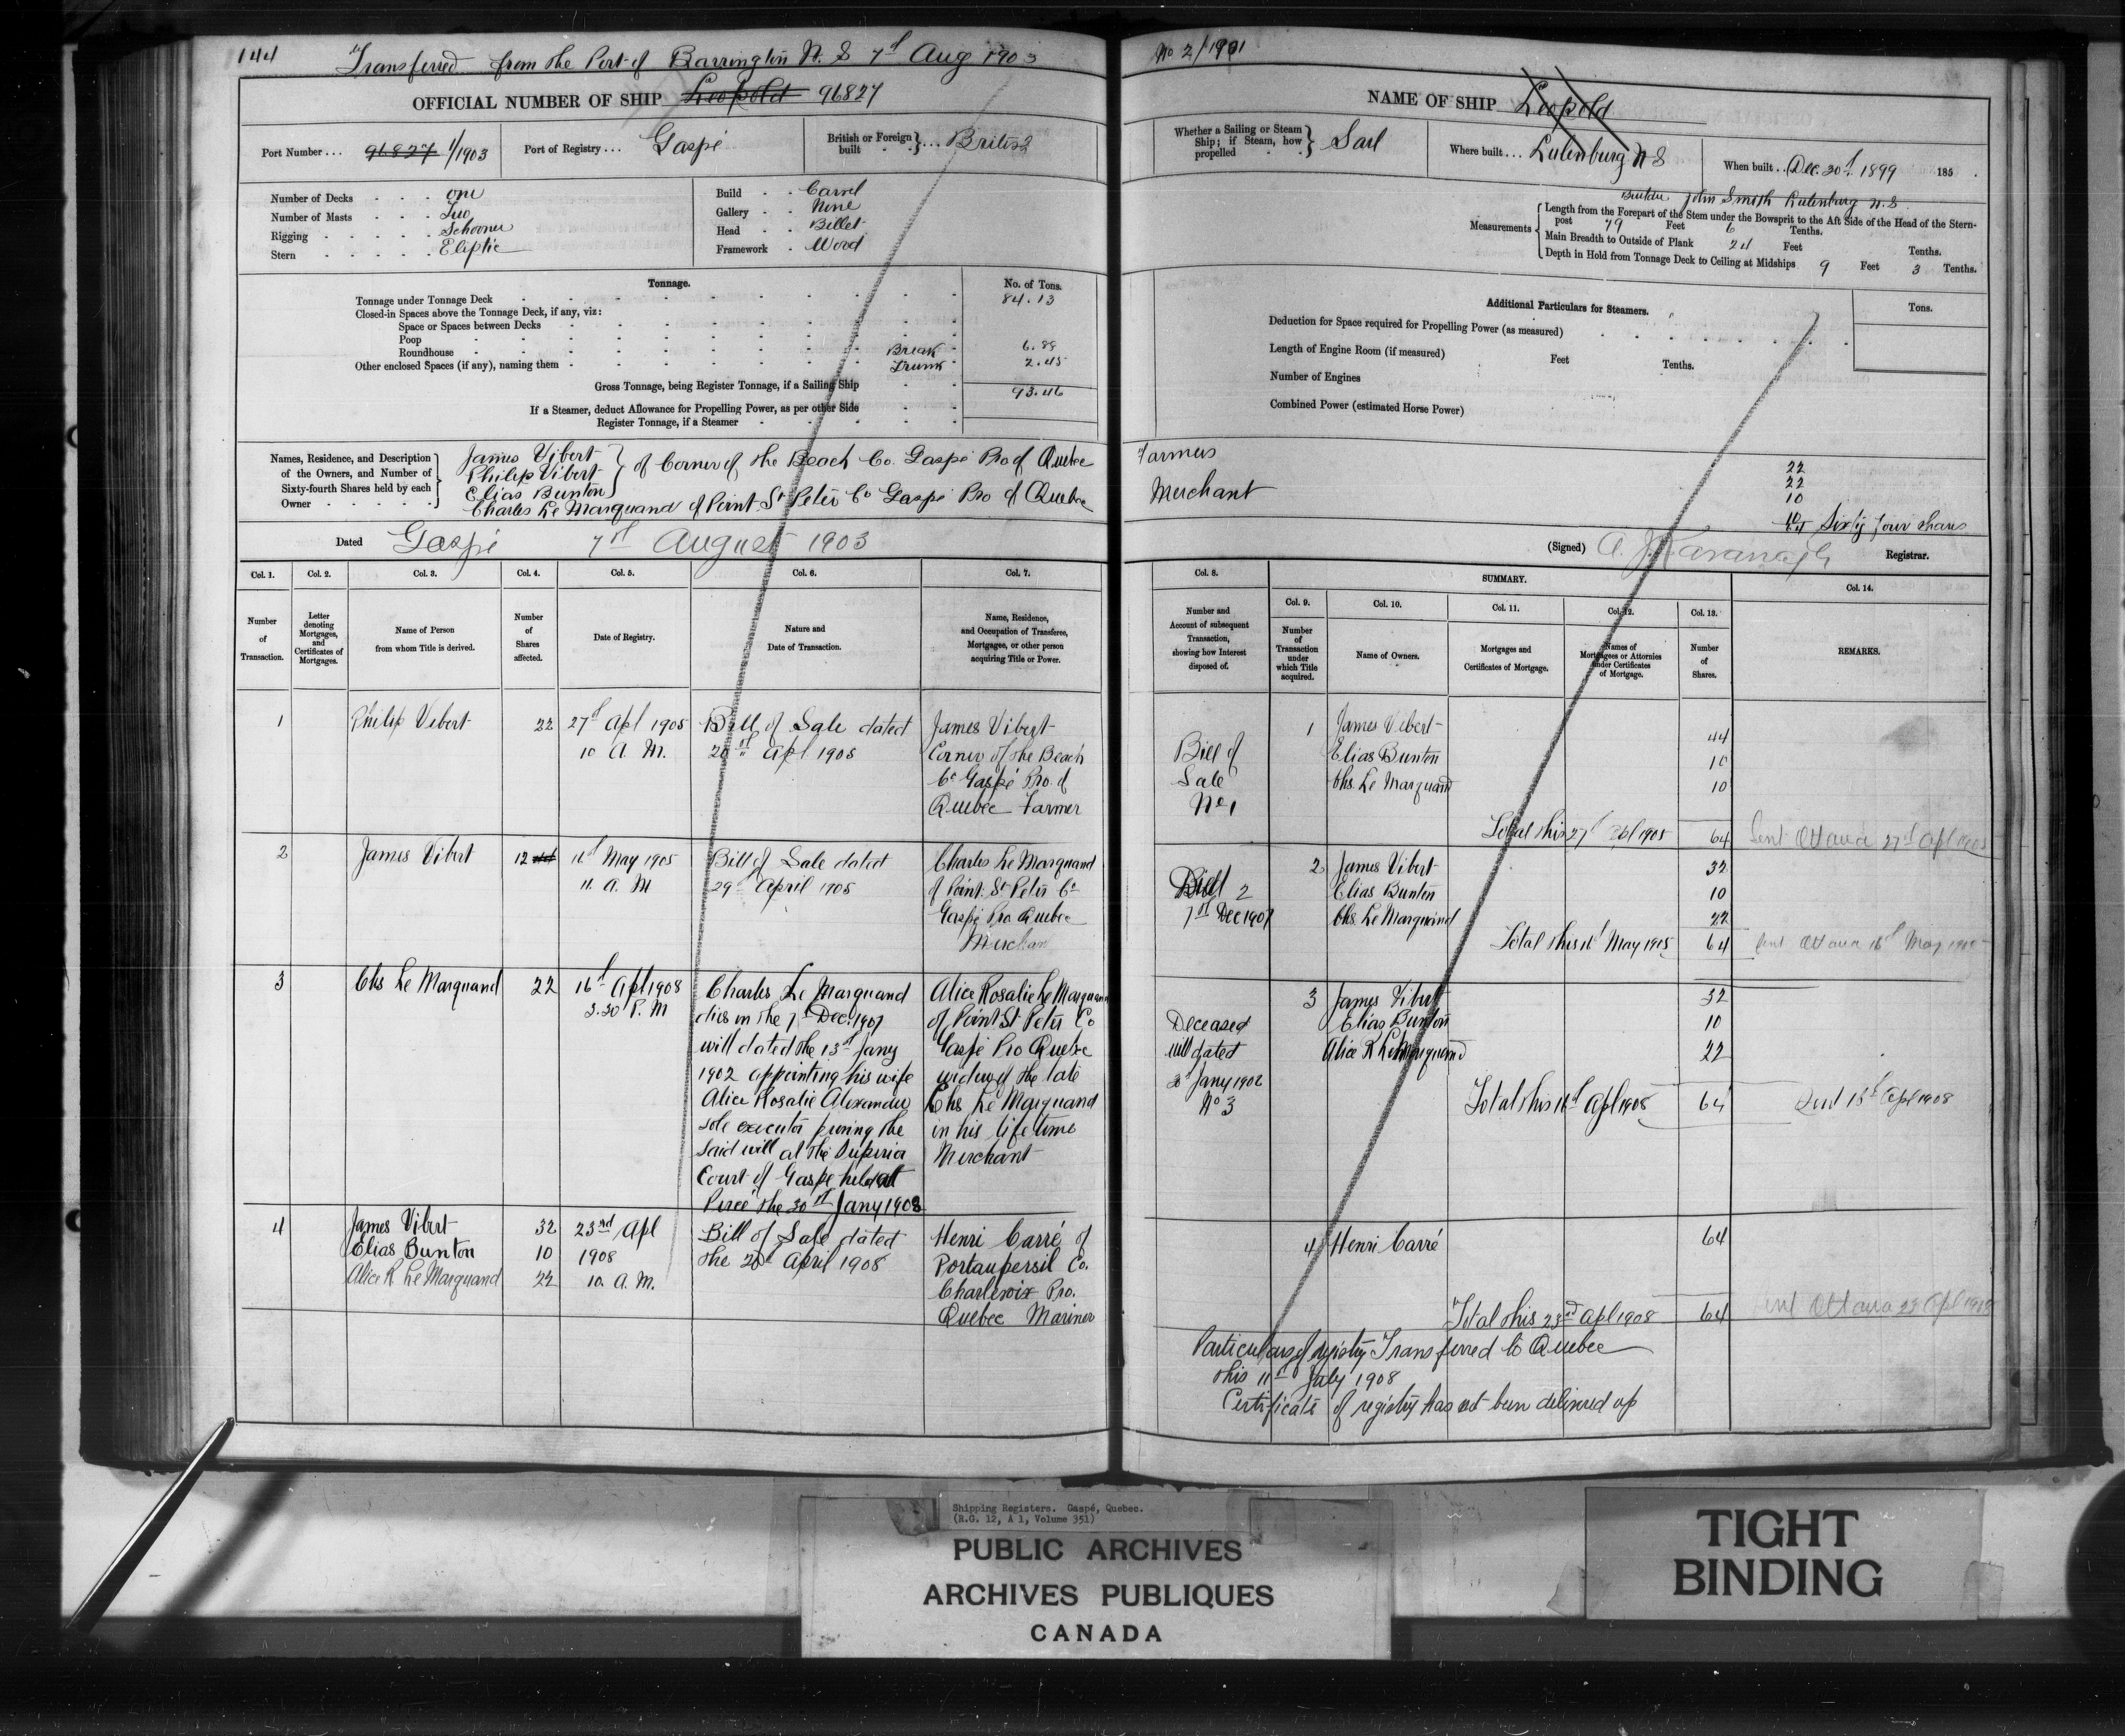 144 Transferred from the Port of Barrington N. S 7th Aug 1903
OFFICIAL NUMBER OF SHIP Leopold 96827
Port Number... 96827 1/1903 Port of Registry... Gaspé British or Foreign built }... British
Number of Decks one
Number of Masts Two
Rigging Schooner
Stern Eliptic
Build Carvel
Gallery None
Head Billet
Framework Wood
Tonnage. No. of Tons.
Tonnage under Tonnage Deck 84.13
Closed-in Spaces above the Tonnage Deck, if any, viz:
Space or Spaces between Decks
Poop
Roundhouse Break 6.88
Other enclosed Spaces (if any), naming them Trunk 2.45
Gross Tonnage, being Register Tonnage, if a Sailing Ship 93.46
If a Steamer, deduct Allowance for Propelling Power, as per other Side
Register Tonnage, if a Steamer
Names, Residence, and Description
of the Owners, and Number of
Sixty-fourth Shares held by each
Owner
James Vibert
Philip Vibert
Elias Bunton
} of Corner of the Beach Co. Gaspé Pro of Quebec
Charles Le Marquand of Point St Peter Co Gaspé Pro of Quebec
Dated Gaspé 7th August 1903
Col. 1. Col. 2. Col. 3. Col. 4. Col. 5. Col. 6. Col. 7.
Number
of
Transaction.
Letter
denoting
Mortgages,
and
Certificates of
Mortgages.
Name of Person
from whom Title is derived.
Number
of
Shares
affected.
Date of Registry.
Nature and
Date of Transaction.
Name, Residence,
and Occupation of Transferee,
Mortgagee, or other person
acquiring Title or Power.
1 Philip Vibert 22 27th Apl 1905
10 A. M.
Bill of Sale dated
20th Apl 1905
James Vibert
Corner of the Beach
Co Gaspé Pro. of
Quebec Farmer
2 James Vibert 12 May 1905
11. A. M
Bill of Sale dated
29th April 1905
Charles Le Marquand
of Point St Peter Co
Gaspé Pro Quebec
Merchan
3 Chs Le Marquand 22 16th Apl 1908
3.30 P. M
Charles Le Marquand
dies on the 7th Dec. 1907
will dated the 13th Jany
1902 appointing his wife
Alice Rosalie Alexander
sole executor proving the
said will at the Superior
Court of Gaspe held at
Percé the 30th Jany 1908
Alice Rosalie Le Marquand
of Point St Peter Co
Gaspé Pro Quebec
widow of the late
Chs Le Marquand
in his life time
Merchant
4 James Vibert 32 23rd Apl
Elias Bunton 10 1908
Alice R Le Marquand 22 10. A. M.
Bill of Sale dated
the 20th April 1908
Henri Carré of
Portaupersil Co.
Charlevoix Pro.
Quebec Mariner
No 2/1901
NAME OF SHIP Leopold
Whether a Sailing or Steam
Ship; if Steam, how
propelled
} Sail Where built... Lulenburg N S When built... Dec. 30th. 1899 185
Builder John Smith Lulenburg N.S.
Measurements
Length from the Forepart of the Stem under the Bowsprit to the Aft Side of the Head of the Stern-
post 79 Feet 6 Tenths.
Main Breadth to Outside of Plank 24 Feet Tenths.
Depth in Hold from Tonnage Deck to Ceiling at Midships 9 Feet 3 Tenths.
Additional Particulars for Steamers. Tons.
Deduction for Space required for Propelling Power (as measured)
Length of Engine Room (if measured) Feet Tenths.
Number of Engines
Combined Power (estimated Horse Power)
Farmers 22
22
Merchant 10
10
64 Sixty four shares
(Signed) A. J. Kavanagh Registrar.
Col. 8. SUMMARY. Col. 14.
Col. 9. Col. 10. Col. 11. Col. 12. Col. 13.
Number and
Account of subsequent
Transaction,
showing how Interest
disposed of.
Number
of
Transaction
under
which Title
acquired.
Name of Owners.
Mortgages and
Certificates of Mortgage.
Names of
Mortgagees or Attornies
under Certificates
of Mortgage.
Number
of
Shares.
REMARKS.
Bill of
Sale
No 1
1 James Vibert 44
Elias Bunton 10
Chs. Le Marquand 10
Total this 27th Apl 1905 64 Sent Ottawa 27th Apl 1905
Bill 2
7th Dec 1907
2 James Vibert 32
Elias Bunton 10
Chs. Le Marquand 22
Total this May 1905 64 Sent Ottawa May
Deceased
will dated
Jany 1902
No 3
3 James Vibert 32
Elias Bunton 10
Alice R Le Marquand 22
Total this Apl 1908 64 Apl 1908
4 Henri Carré 64
Total this 23rd Apl 1908 64 Ottawa 23 Apl
Particulars of registry Transferred to Quebec
this 11th July 1908
Certificate of registry has not been delivered up
Shipping Registers. Gaspé, Quebec.
(R.G. 12, A 1, Volume 351)
PUBLIC ARCHIVES
ARCHIVES PUBLIQUES
CANADA
TIGHT
BINDING